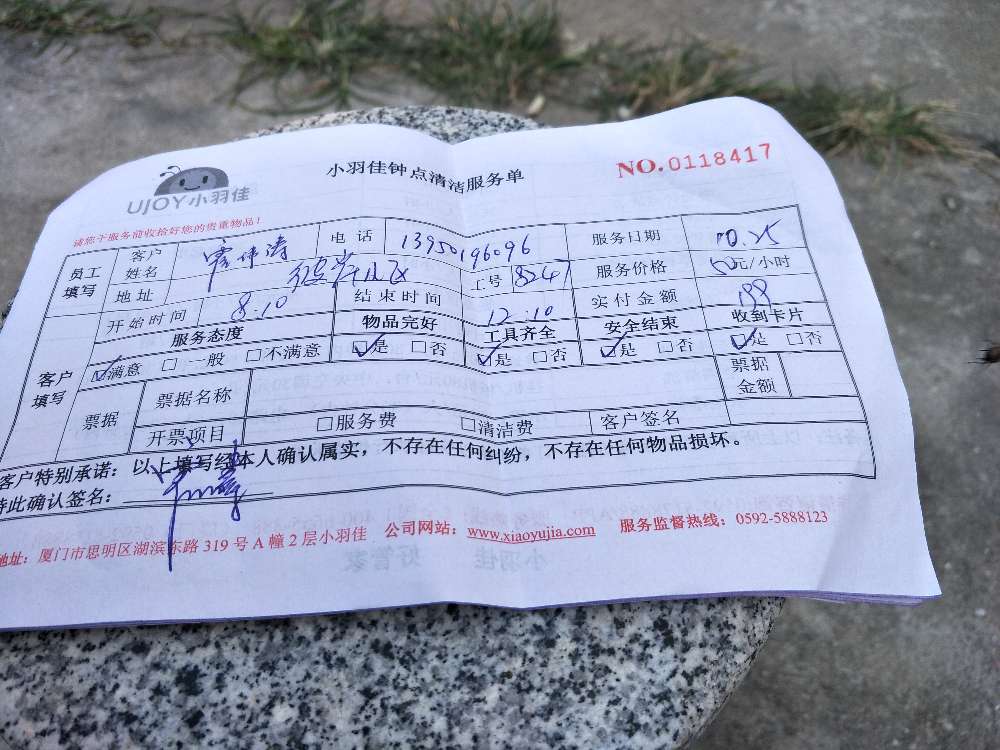 UJOY小羽佳
小羽佳钟点清洁服务单
NO.0118417
请您于服务前收拾好您的贵重物品!
员工填写 客户姓名 电话 13950196096 服务日期 10.25
地址 工号 8247 服务价格 元/小时
开始时间 8:10 结束时间 12:10 实付金额
客户填写 服务态度 物品完好 工具齐全 安全结束 收到卡片
☑满意 □一般 □不满意 ☑是 □否 ☑是 □否 ☑是 □否 ☑是 □否
票据 票据名称 票据金额
开票项目 □服务费 □清洁费 客户签名
客户特别承诺: 以上填写经本人确认属实，不存在任何纠纷，不存在任何物品损坏。
特此确认签名:
地址: 厦门市思明区湖滨东路 319 号 A 幢 2 层小羽佳 公司网站: www.xiaoyujia.com 服务监督热线: 0592-5888123